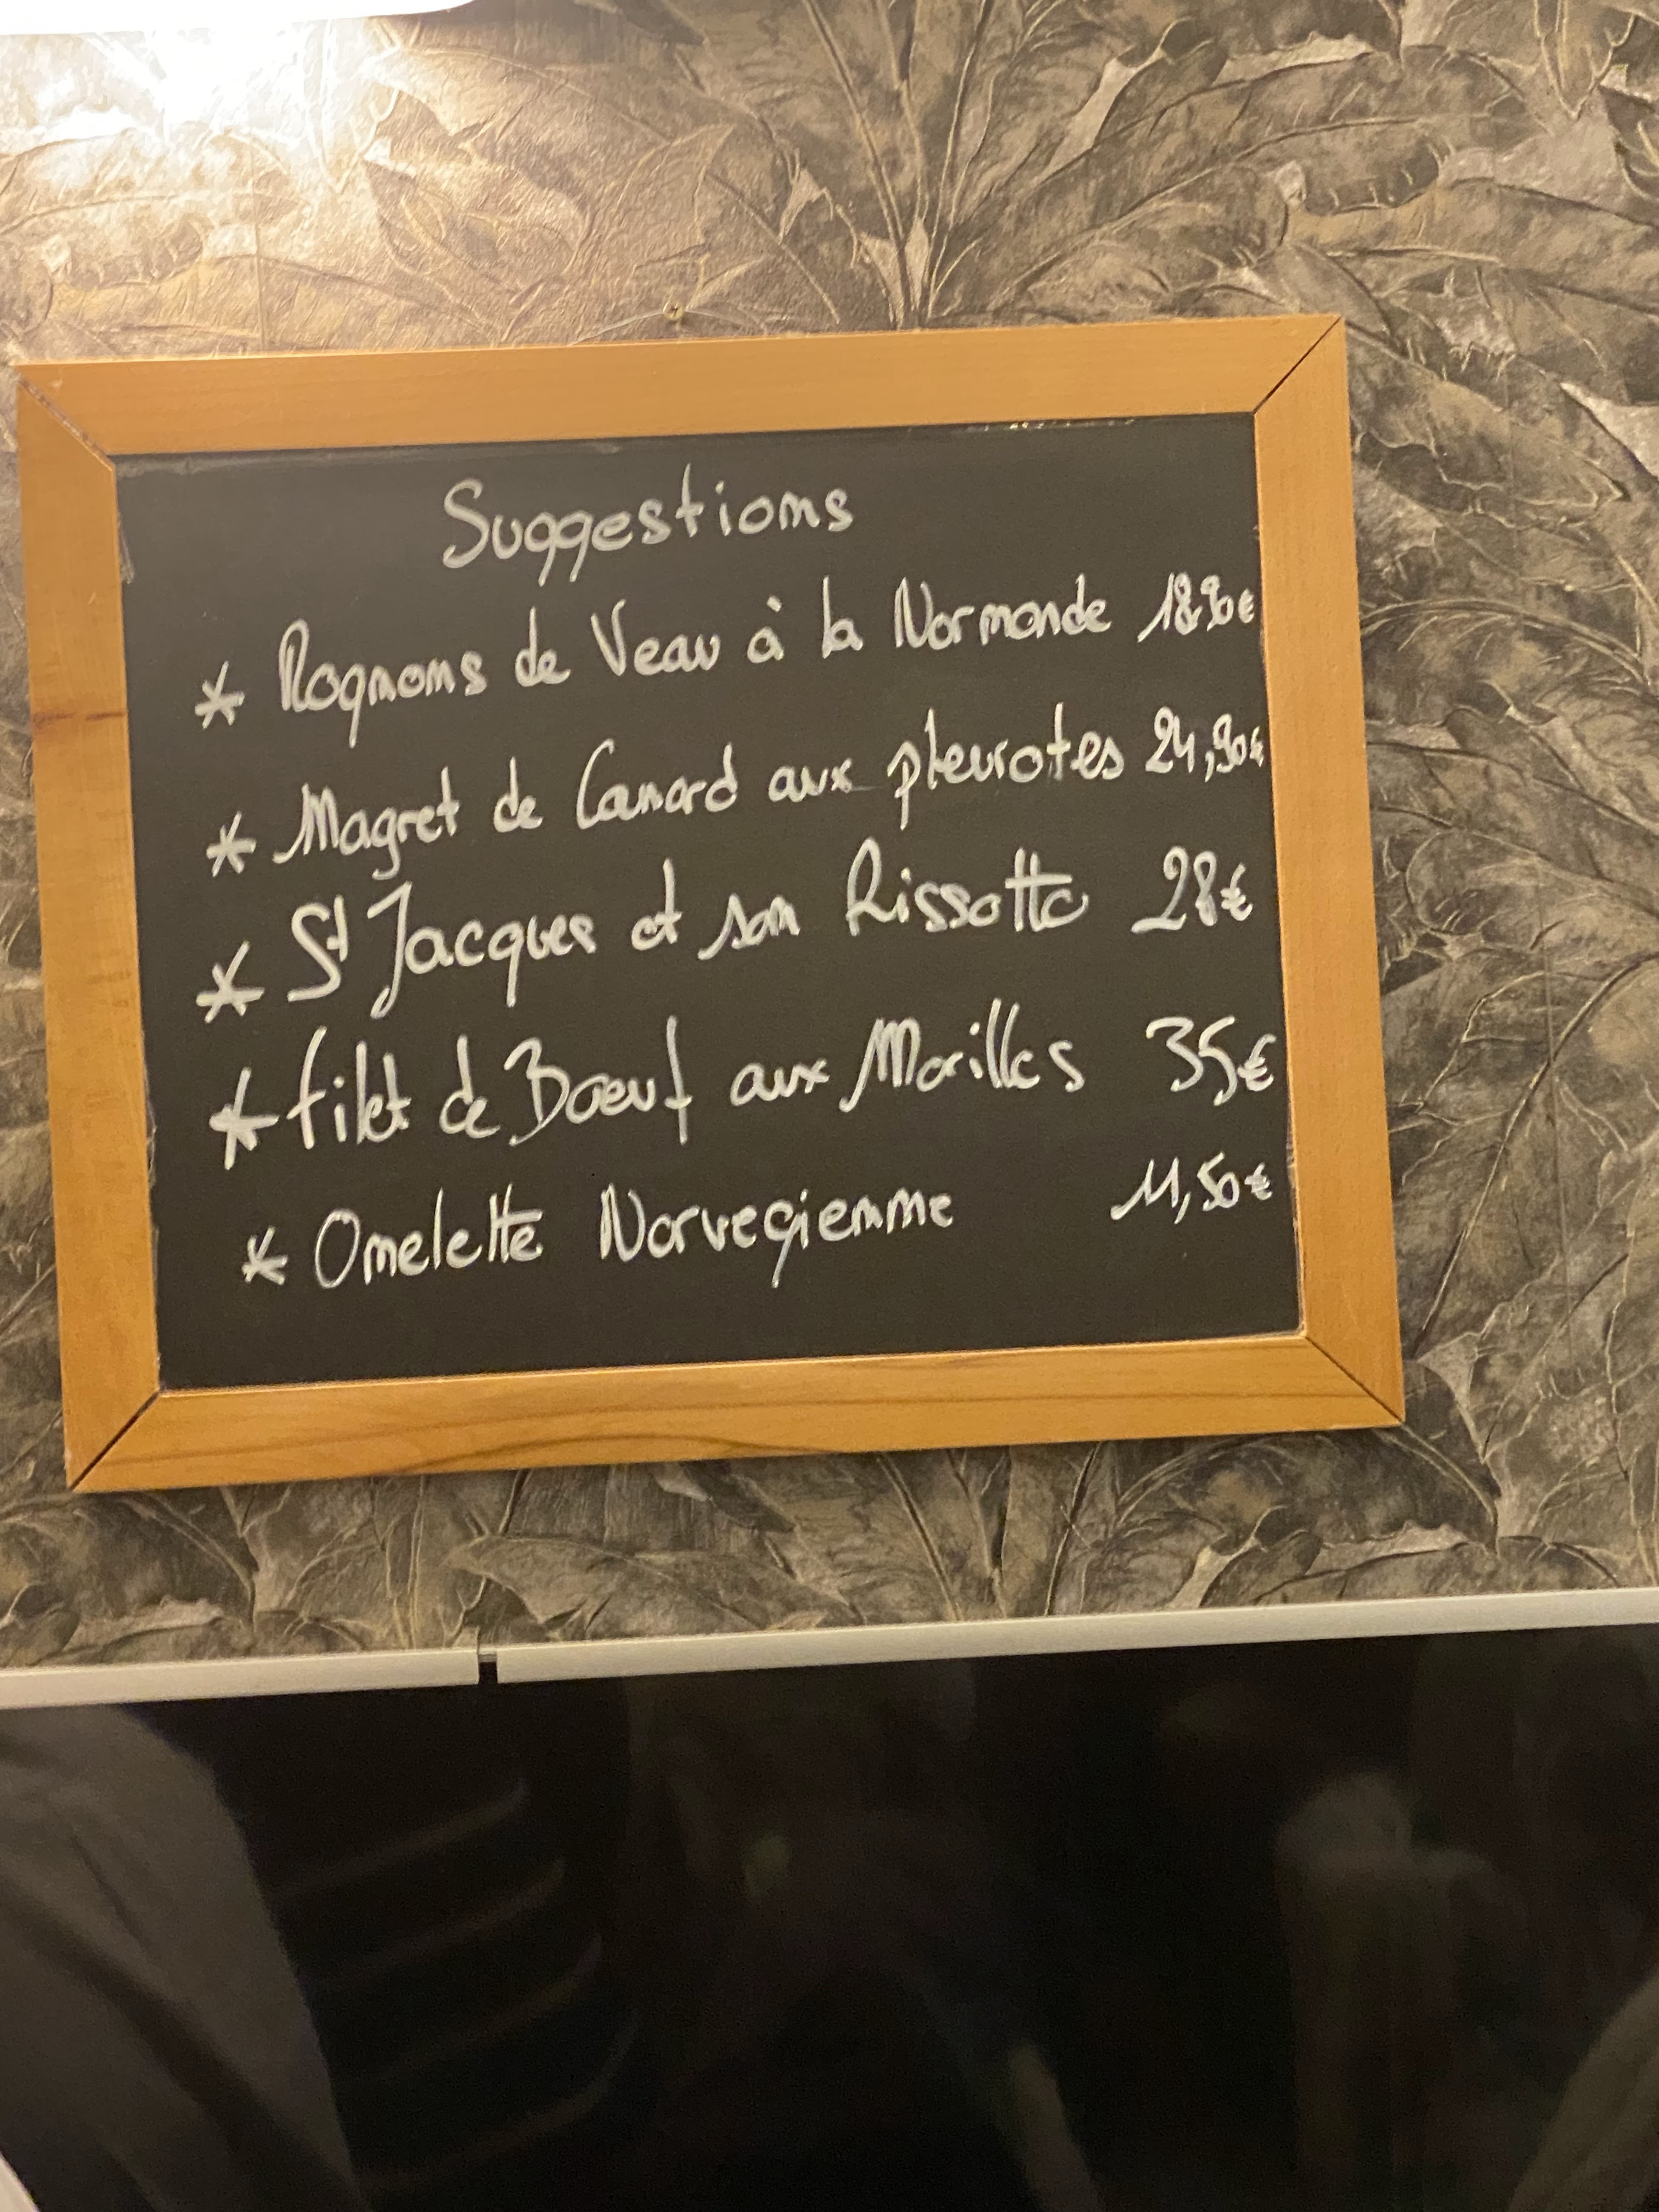 Suggestions
* Rognons de Veau à la Normande 18,90€
* Magret de Canard aux pleurotes 24,90€
* St Jacques et son Rissotto 28€
* filet de Boeuf aux Morilles 35€
* Omelette Norvegienne 11,50€